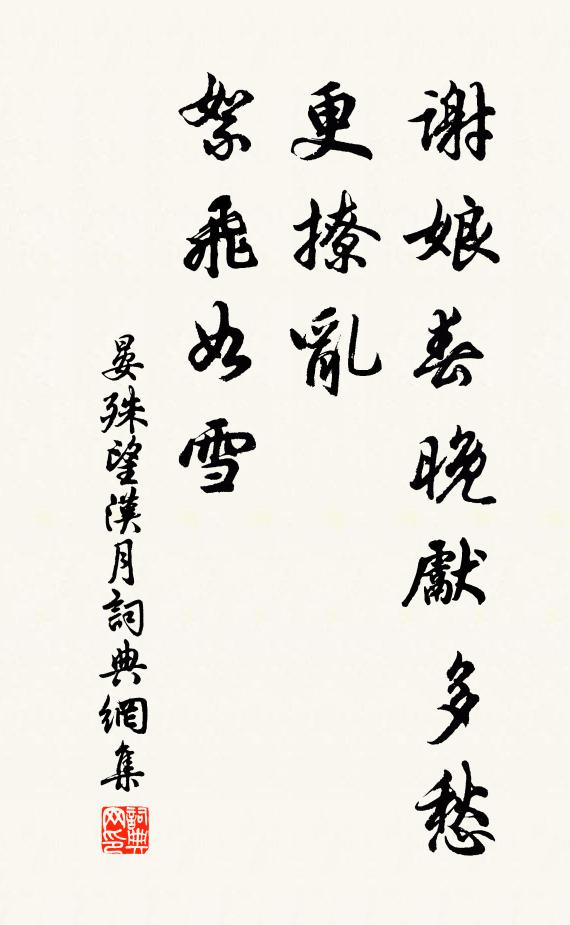 謝娘春晚獻多愁
更撩亂
絮飛如雪
晏殊望漢月詞典網集
詞典网印